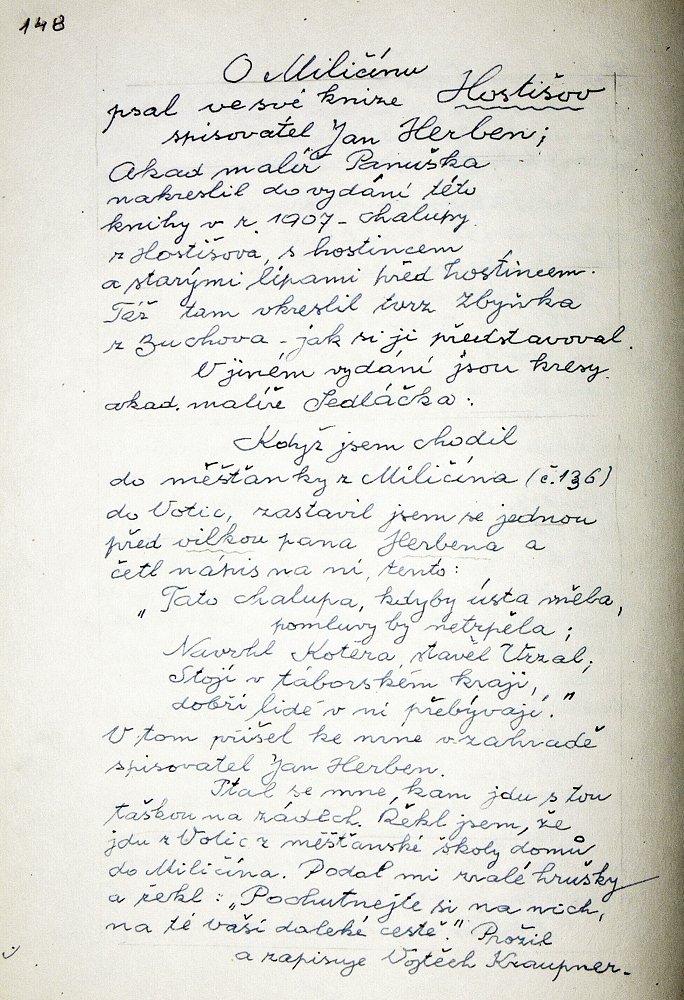 148
O Miličínu
psal ve své knize Hostišov
spisovatel Jan Herben;
Akad malíř Panuška
nakreslil do vydání této
knihy v r. 1907 - chalupy
z Hostišova, s hostincem
a starými lípami před hostincem.
Též tam vkreslil tvrz Zbyňka
z Buchova - jak si ji představoval.
V jiném vydání jsou kresy
akad. malíře Sedláčka.
Když jsem chodil
do měšťanky z Miličína (č. 136)
do Votic, zastavil jsem se jednou
před vilkou pana Herbena a
četl nápis na ní, tento:
"Tato chalupa, kdyby ústa měla,
pomluvy by netrpěla;
Navrhl Kotěra, stavěl Vrzal;
Stojí v táborském kraji,
dobří lidé v ní přebývají."
V tom přišel ke mne v zahradě
spisovatel Jan Herben.
Ptal se mne, kam jdu s tou
taškou na zádech. Řekl jsem, že
jdu z Votic z měšťanské školy domů
do Miličína. Podal mi zralé hrušky
a řekl: "Pochutnejte si na nich,
na té vaší daleké cestě." Prožil
a zapisuje Vojtěch Kraupner.